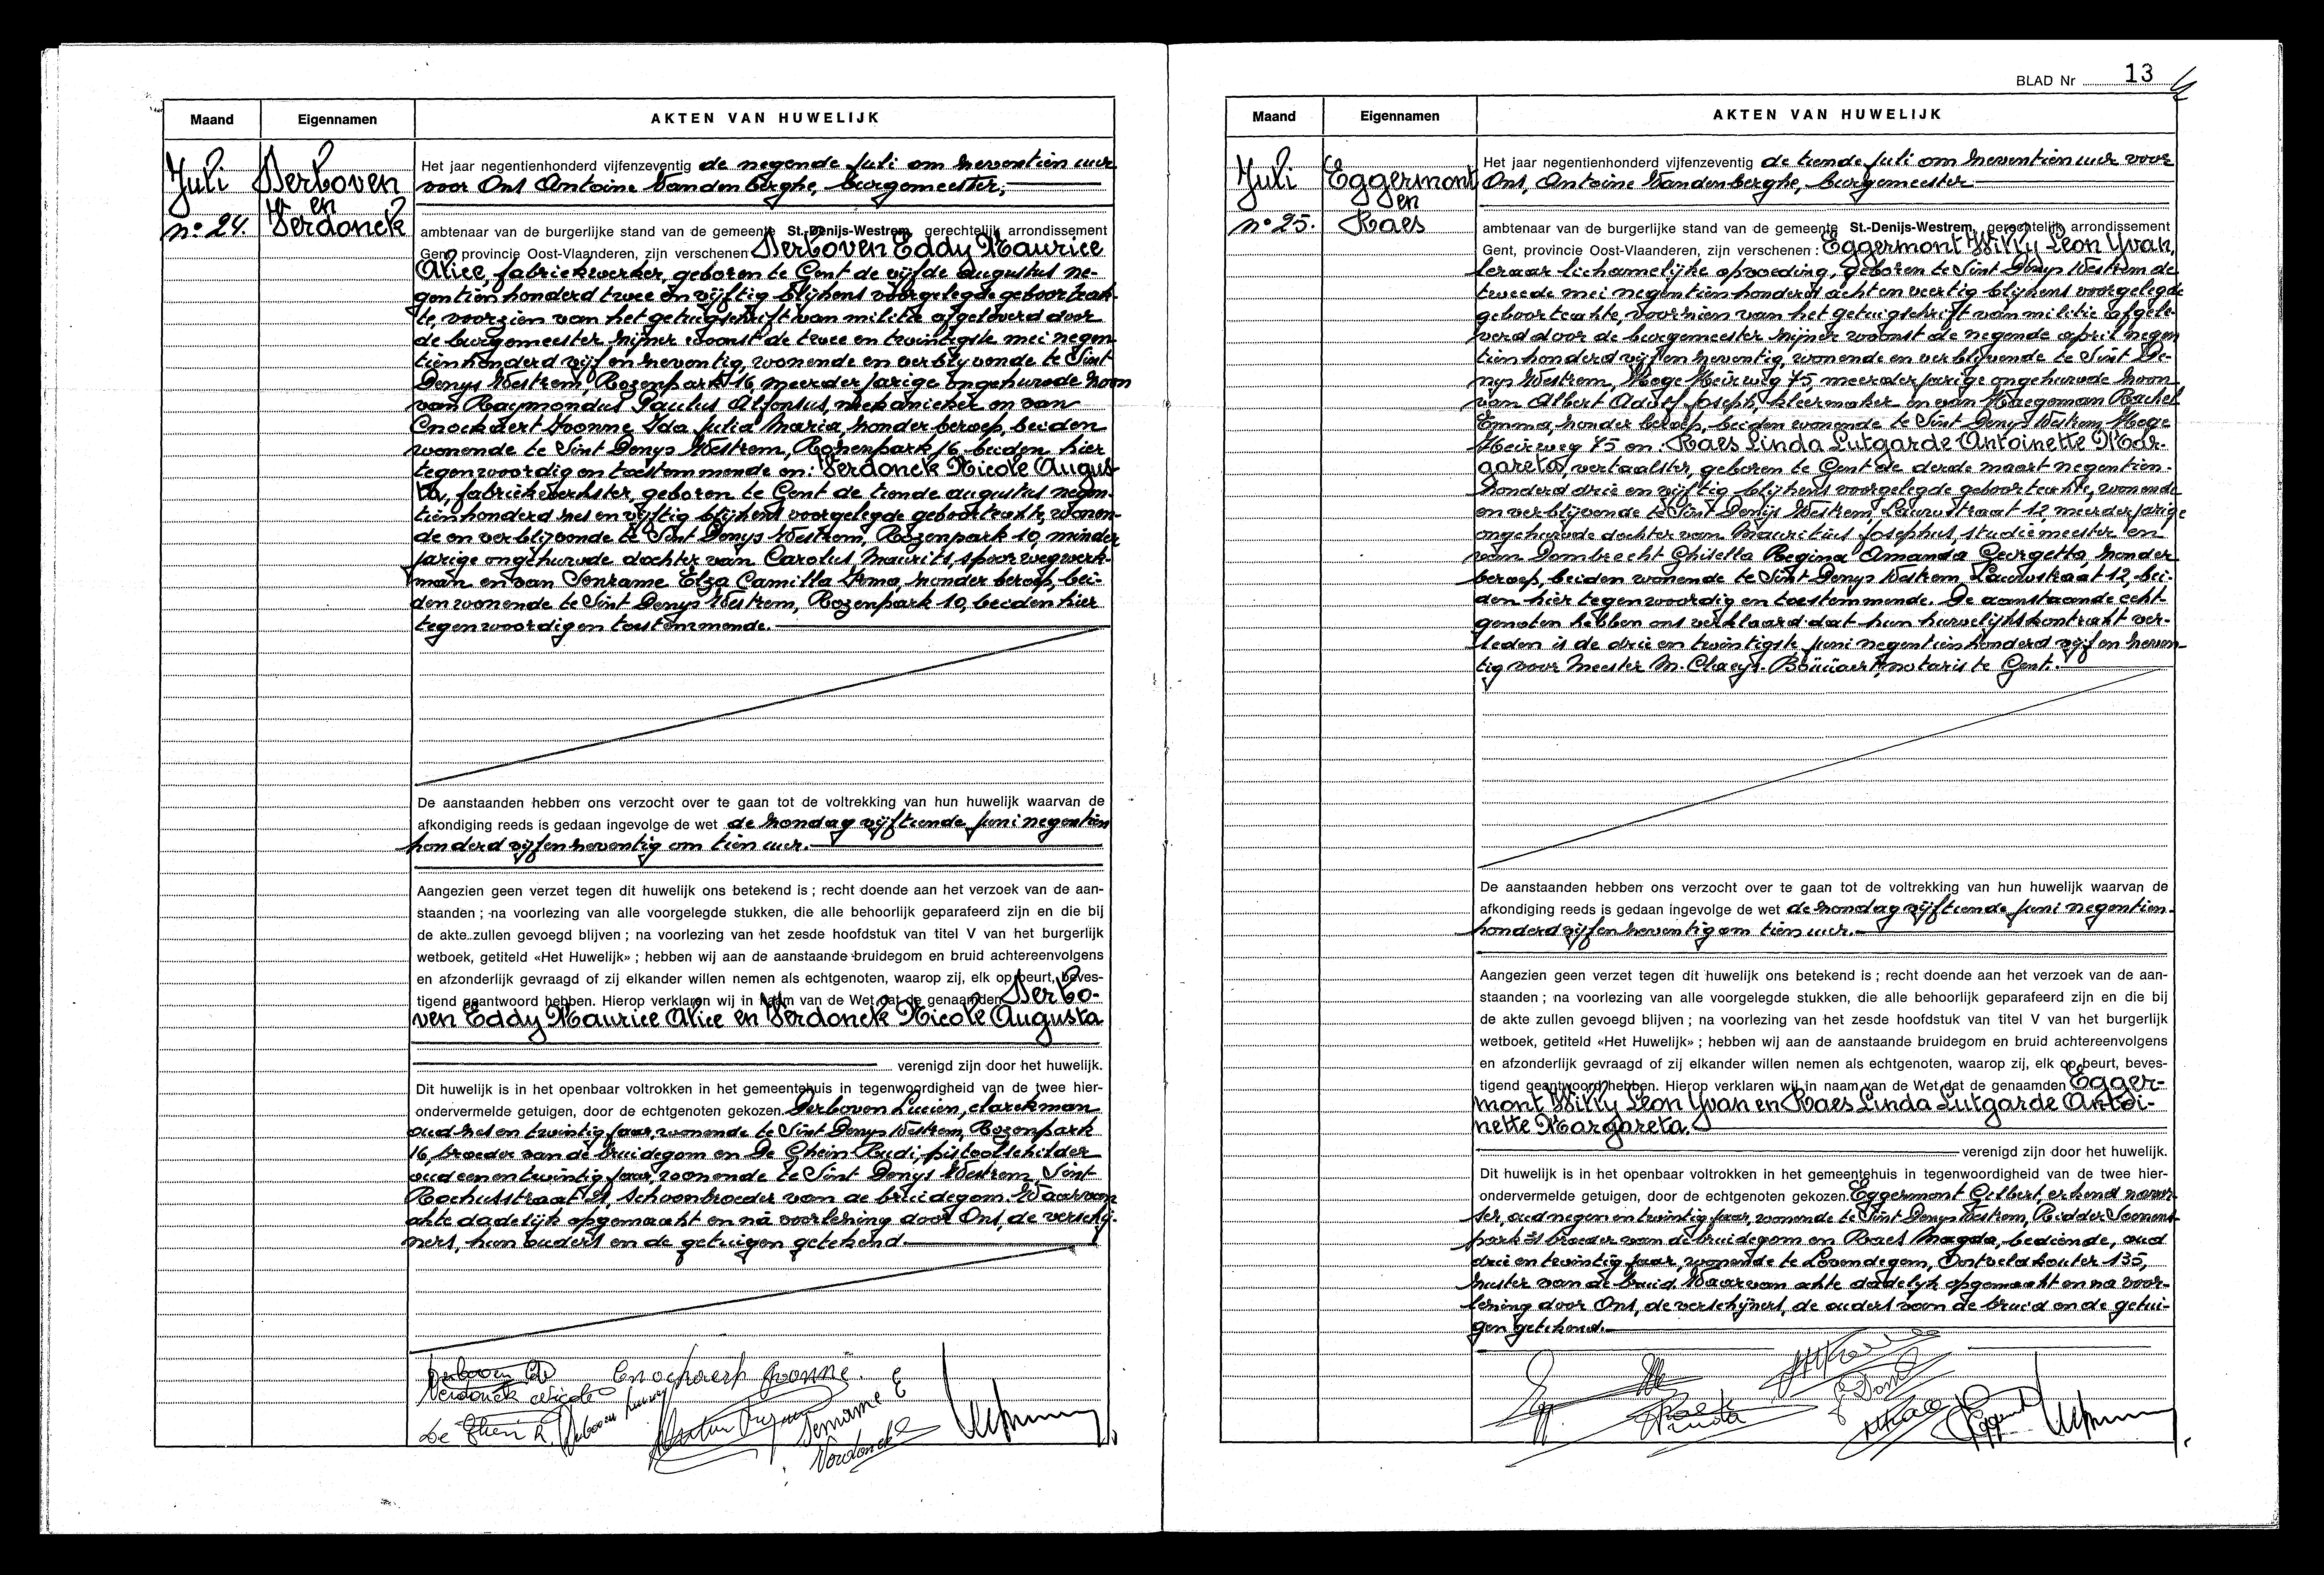 Maand Eigennamen AKTEN VAN HUWELIJK
Juli
n° 24.
Derboven
en
Verdonck
Het jaar negentienhonderd vijfenzeventig de negende Juli om zeventien uur
voor Ons Antoine Vandenberghe, burgemeester,
ambtenaar van de burgerlijke stand van de gemeente St.-Denijs-Westrem, gerechtelijk arrondissement
Gent, provincie Oost-Vlaanderen, zijn verschenen Derboven Eddy Maurice
Alice, fabriekwerker, geboren te Gent de vijfde augustus ne-
gentien honderd twee en vijftig blijkens voorgelegde geboorteak-
te, voorzien van het getuigschrift van militie afgeleverd door
de burgemeester zijner woonst de twee en twintigste mei negen-
tienhonderd vijf en zeventig, wonende en verblijvende te Sint
Denys Westrem, Rozenpark 16, meerderjarige ongehuwde zoon
van Raymondus Paulus Alfonsus, mekanieker en van
Cnockaert Yvonne Ida Julia Maria, zonder beroep, beiden
wonende te Sint Denys Westrem, Rozenpark 16, beiden hier
tegenwoordig en toestemmende en: Verdonck Nicole Augus-
ta, fabriekwerkster, geboren te Gent de tiende augustus negen-
tienhonderd zes en vijftig blijkens voorgelegde geboorteakte, wonen-
de en verblijvende te Sint Denys Westrem, Rozenpark 10, minder
jarige ongehuwde dochter van Carolus Maurits, spoorwegwerk-
man en van Senrame Elza Camilla Irma, zonder beroep, bei-
den wonende te Sint Denys Westrem, Rozenpark 10, beiden hier
tegenwoordig en toestemmende.
De aanstaanden hebben ons verzocht over te gaan tot de voltrekking van hun huwelijk waarvan de
afkondiging reeds is gedaan ingevolge de wet de zondag vijftiende juni negentien
honderd vijfenzeventig om tien uur.
Aangezien geen verzet tegen dit huwelijk ons betekend is ; recht doende aan het verzoek van de aan-
staanden ; na voorlezing van alle voorgelegde stukken, die alle behoorlijk geparafeerd zijn en die bij
de akte zullen gevoegd blijven ; na voorlezing van het zesde hoofdstuk van titel V van het burgerlijk
wetboek, getiteld «Het Huwelijk» ; hebben wij aan de aanstaande bruidegom en bruid achtereenvolgens
en afzonderlijk gevraagd of zij elkander willen nemen als echtgenoten, waarop zij, elk op beurt, beves-
tigend geantwoord hebben. Hierop verklaren wij in naam van de Wet dat de genaamden Derbo-
ven Eddy Maurice Alice en Verdonck Nicole Augusta
verenigd zijn door het huwelijk.
Dit huwelijk is in het openbaar voltrokken in het gemeentehuis in tegenwoordigheid van de twee hier-
ondervermelde getuigen, door de echtgenoten gekozen. Derboven Lucien, clarckman
oud zes en twintig jaar, wonende te Sint Denys Westrem, Rozenpark
16, broeder van de bruidegom en De Ghein Rudi, pistoolschilder
oud een en twintig jaar, wonende te Sint Denys Westrem, Sint
Rochusstraat, schoonbroeder van de bruidegom. Waarvan
akte dadelijk opgemaakt en na voorlezing door Ons, de verschij-
ners, hun ouders en de getuigen getekend
Cnockaert Yvonne.
Verdonck Nicole
De Ghein R.
Senrame E
Verdonck
BLAD Nr 13
Maand Eigennamen AKTEN VAN HUWELIJK
Juli
n° 25.
Eggermont
en
Raes
Het jaar negentienhonderd vijfenzeventig de tiende Juli om zeventien uur voor
Ons, Antoine Vandenberghe, burgemeester
ambtenaar van de burgerlijke stand van de gemeente St.-Denijs-Westrem, gerechtelijk arrondissement
Gent, provincie Oost-Vlaanderen, zijn verschenen : Eggermont Willy Leon Yvan,
leraar lichamelijke opvoeding, geboren te Sint Denys Westrem de
tweede mei negentien honderd acht en veertig blijkens voorgelegde
geboorteakte, voorzien van het getuigschrift van militie afgele-
verd door de burgemeester zijner woonst de negende april negen
tienhonderd vijf en zeventig, wonende en verblijvende te Sint De-
nys Westrem, Hoge Heirweg 75, meerderjarige ongehuwde zoon
van Albert Adolf Joseph, kleermaker en van Haegeman Rachel
Emma, zonder beroep, beiden wonende te Sint Denys Westrem, Hoge
Heirweg 75 en: Raes Linda Lutgarde Antoinette Mar-
gareta, vertaalster, geboren te Gent de derde maart negentien-
honderd drie en vijftig blijkens voorgelegde geboorteakte, wonende
en verblijvende te Sint Denys Westrem, Lauwstraat 12, meerderjarige
ongehuwde dochter van Mauritius Josephus, studiemeester en
van Dombrecht Ghisella Regina Amanda Georgetta, zonder
beroep, beiden wonende te Sint Denys Westrem, Lauwstraat 12, bei-
den hier tegenwoordig en toestemmende. De aanstaande echt-
genoten hebben ons verklaard dat hun huwelijkskontrakt ver-
leden is de drie en twintigste juni negentienhonderd vijf en zeven-
tig voor Meester M. Claeys-Boüüaert, notaris te Gent.
De aanstaanden hebben ons verzocht over te gaan tot de voltrekking van hun huwelijk waarvan de
afkondiging reeds is gedaan ingevolge de wet de zondag vijftiende juni negentien-
honderd vijfenzeventig om tien uur.
Aangezien geen verzet tegen dit huwelijk ons betekend is ; recht doende aan het verzoek van de aan-
staanden ; na voorlezing van alle voorgelegde stukken, die alle behoorlijk geparafeerd zijn en die bij
de akte zullen gevoegd blijven ; na voorlezing van het zesde hoofdstuk van titel V van het burgerlijk
wetboek, getiteld «Het Huwelijk» ; hebben wij aan de aanstaande bruidegom en bruid achtereenvolgens
en afzonderlijk gevraagd of zij elkander willen nemen als echtgenoten, waarop zij, elk op beurt, beves-
tigend geantwoord hebben. Hierop verklaren wij in naam van de Wet dat de genaamden Egger-
mont Willy Leon Yvan en Raes Linda Lutgarde Antoi-
nette Margareta.
verenigd zijn door het huwelijk.
Dit huwelijk is in het openbaar voltrokken in het gemeentehuis in tegenwoordigheid van de twee hier-
ondervermelde getuigen, door de echtgenoten gekozen. Eggermont Gilbert, erkend
oud negen en twintig jaar, wonende te Sint Denys Westrem, Ridder Soenens-
park broeder van de bruidegom en Raes Magda, bediende, oud
drie en twintig jaar, wonende te Lovendegem, Oostveldkouter 135,
zuster van de bruid. Waarvan akte dadelijk opgemaakt en na voor-
lezing door Ons, de verschijners, de ouders van de bruid en de getui-
gen getekend.
Raes
Linda